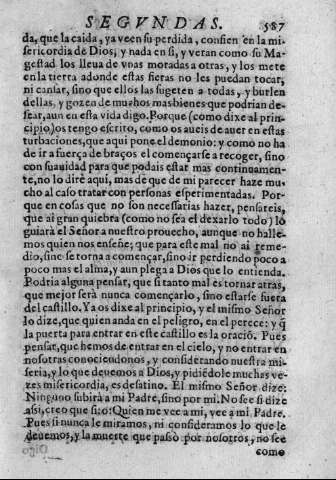 SEGVNDAS. 587
da, que la caida, ya veen su perdida, confien en la mi-
sericordia de Dios, y nada en si, y veran como su Ma-
gestad los lleua de vnas moradas a otras, y los mete
en la tierra adonde estas fieras no les puedan tocar,
ni cansar, sino que ellos las sugeten a todas, y burlen
dellas, y gozen de muchos mas bienes que podrian de-
sear, aun en esta vida digo. Porque (como dixe al prin-
cipio) os tengo escrito, como os aueis de auer en estas
turbaciones, que aqui pone el demonio: y como no ha
de ir a fuerça de braços el començarse a recoger, sino
con suauidad, para que podais estar mas continuamen-
te, no lo diré aqui, mas de que de mi parecer haze mu-
cho al caso tratar con personas esperimentadas. Por-
que en cosas que no son necessarias hazer, pensareis,
que ai gran quiebra (como no sea el dexarlo todo) lo
guiará el Señor a nuestro prouecho, aunque no halle-
mos quien nos enseñe; que para este mal no ai reme-
dio, sino se torna a començar, sino ir perdiendo poco a
poco mas el alma, y aun plega a Dios que lo entienda.
Podria alguna pensar, que si tanto mal es tornar atras,
que mejor será nunca començarlo, sino estarse fuera
del castillo. Ya os dixe al principio, y el mismo Señor
lo dize, que quien anda en el peligro, en el perece: y q̃
la puerta para entrar en este castillo es la oració. Pues
pensar, que hemos de entrar en el cielo, y no entrar en
nosotras conociendonos, y considerando nuestra mi-
seria, y lo que deuemos a Dios, y pidiédole muchas ve-
zes misericordia, es desatino. El mismo Señor dize:
Ninguno subirà a mi Padre, sino por mi. No see si dize
assi, creo que si: o: Quien me vee a mi, vee a mi Padre.
Pues si nunca le miramos, ni consideramos lo que le
deuemos, y la muerte que passò por nosotros, no see
como